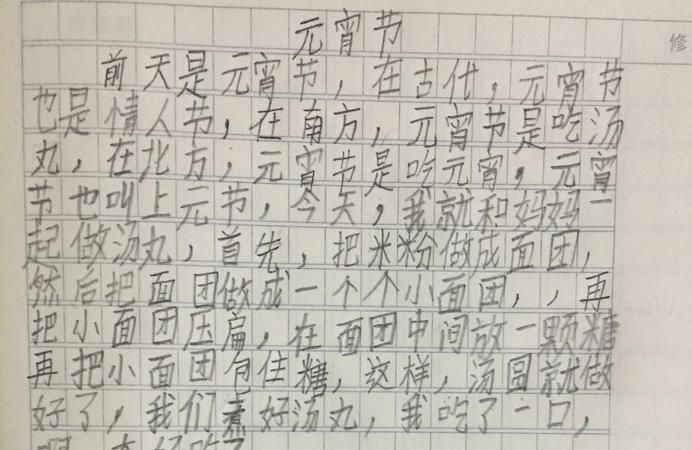 元宵节
修
前天是元宵节，在古代，元宵节
也是情人节，在南方，元宵节是吃汤
丸，在北方，元宵节是吃元宵，元宵
节也叫上元节，今天，我就和妈妈一
起做汤丸，首先，把米粉做成面团，
然后把面团做成一个个小面团，，再
把小面团压扁，在面团中间放一颗糖
再把小面团包住糖，这样，汤圆就做
好了，我们煮好汤丸，我吃了一口，